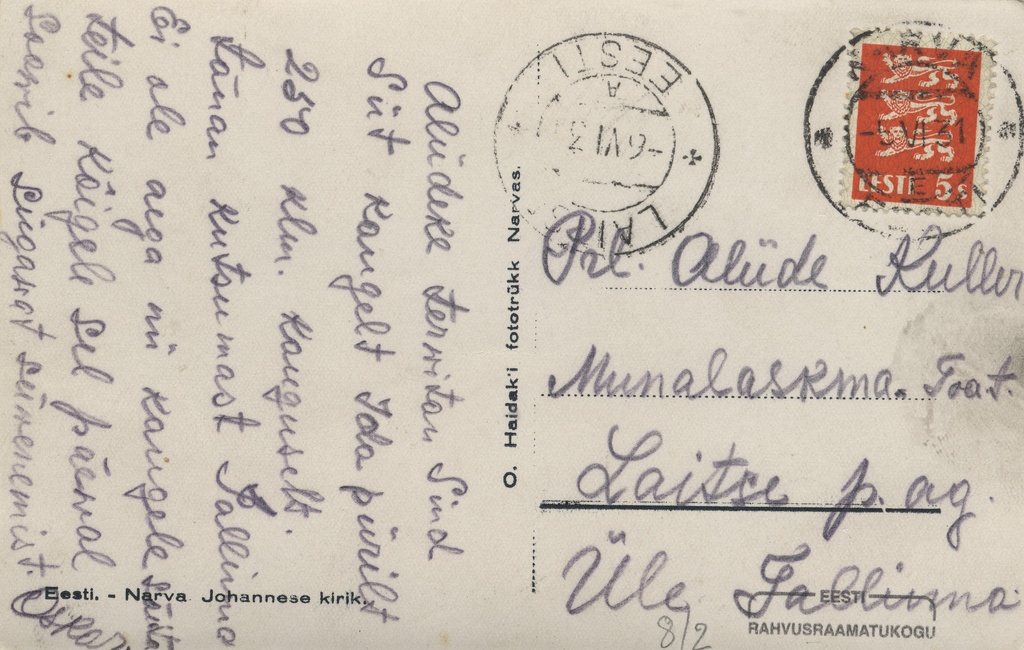 Alüdeke terwitan Sind
Siit kaugelt Ida piirilt
250 klm. kauguselt.
tänan kutsumast Tallinna
Ei ole aega nii kaugele sõita
teile kõigile sel päeval
soovib sügavat süvenemist. Oskar
Eesti. - Narva Johannese kirik.
O. Haidak'i fototrükk Narvas.
EESTI
A
-6.VI.3
LAI
NARVA
-5.VI.31
EESTI 5s
Prl. Alüde Kuller
Munalaskma. Toat.
Laitse p. ag.
Üle Tallinna
8/2
EESTI
RAHVUSRAAMATUKOGU